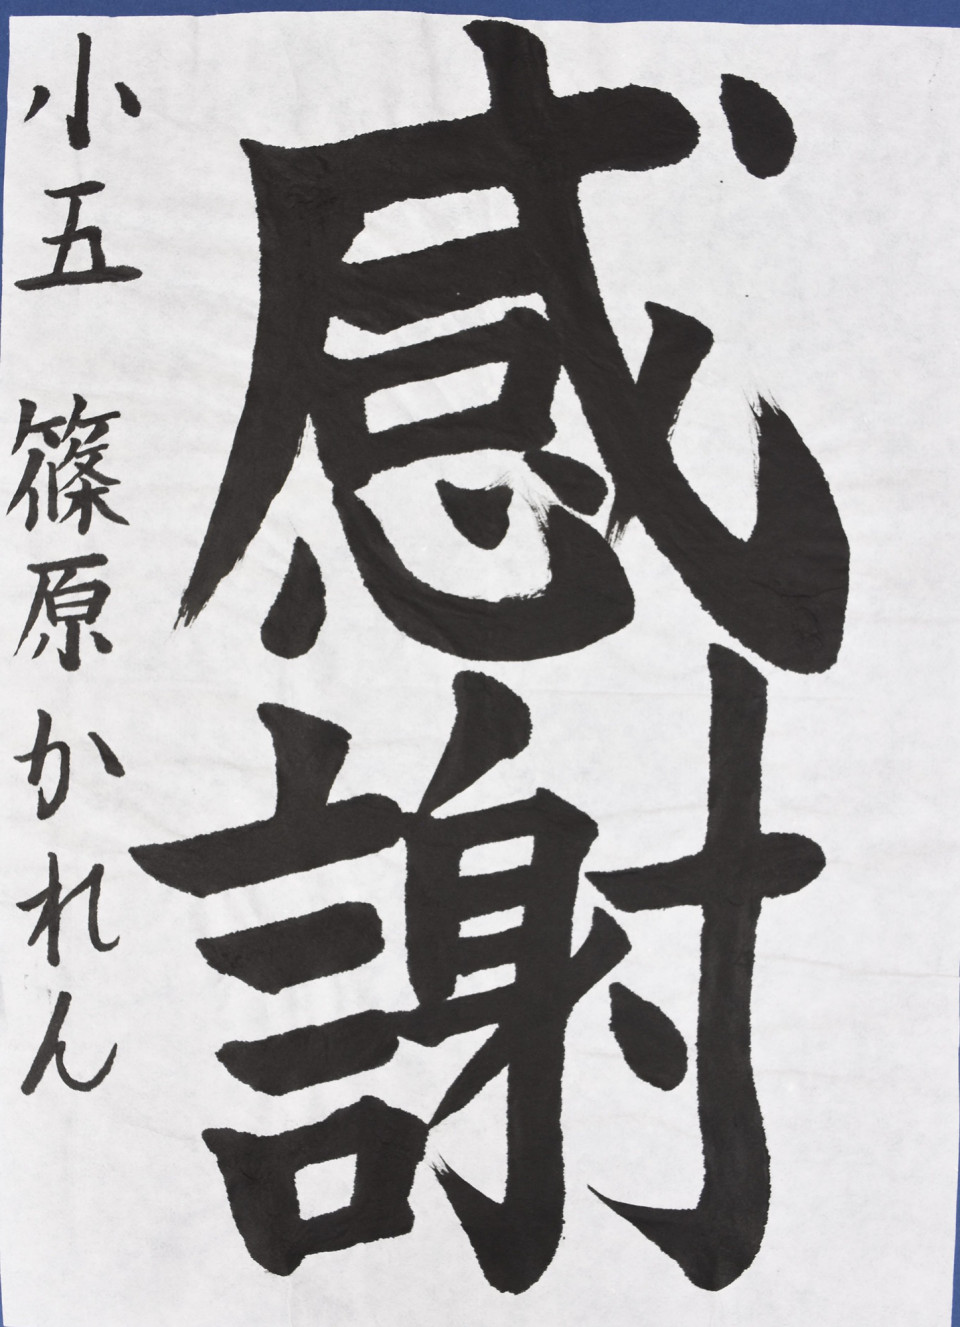 感謝
小五 篠原かれん